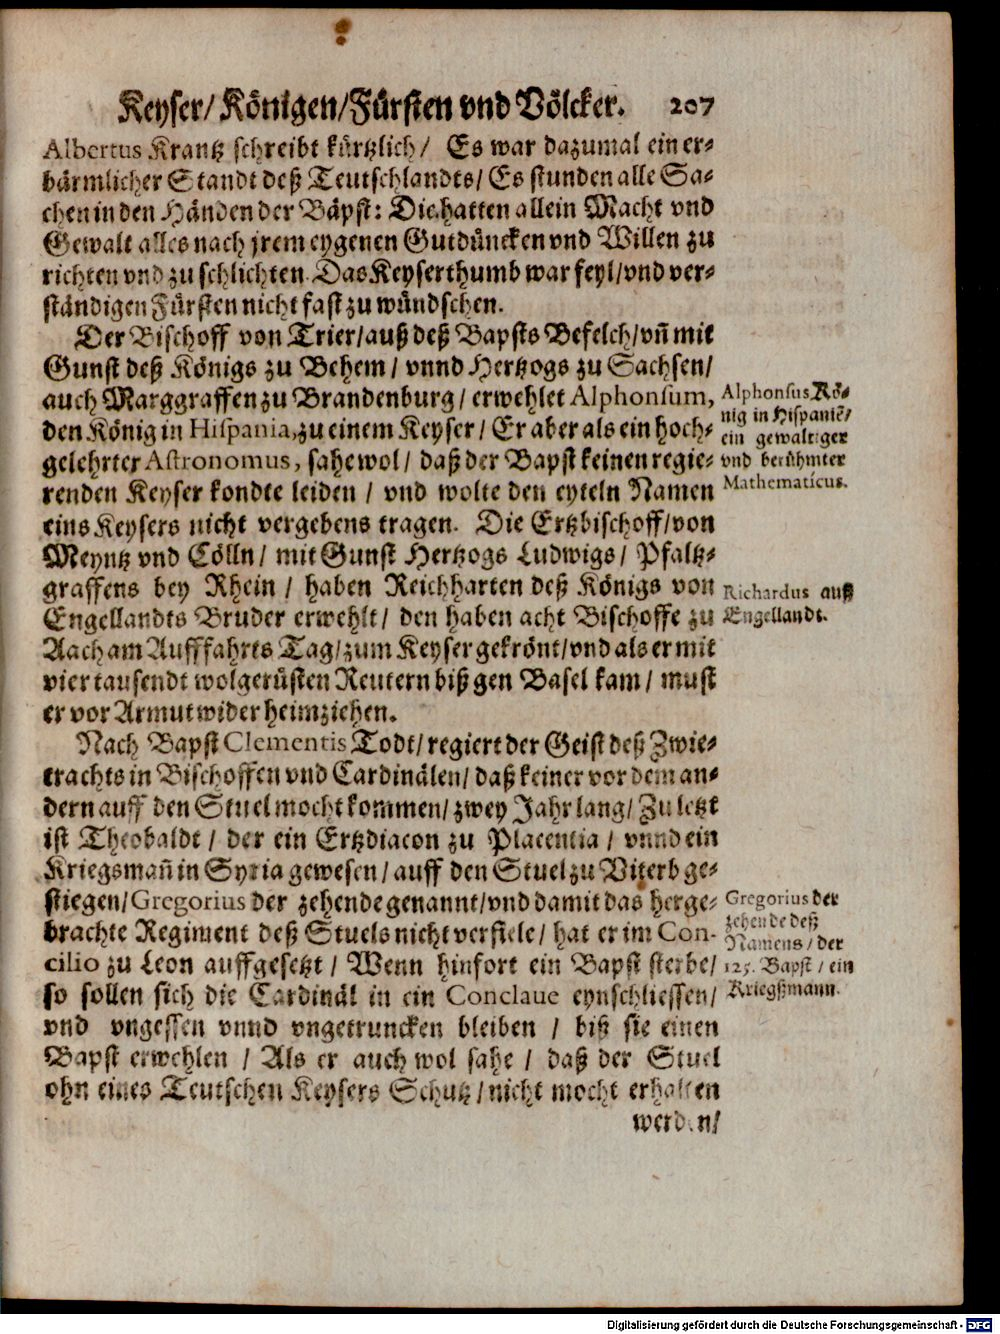 Keyser/ Königen/Fürsten vnd Völcker. 207
Albertus Krantz schreibt kürtzlich/ Es war dazumal ein er-
bärmlicher Standt deß Teutschlandts/ Es stunden alle Sa-
chen in den Händen der Bäpst: Die hatten allein Macht vnd
Gewalt alles nach jrem eygenen Gutdüncken vnd Willen zu
richten vnd zu schlichten. Das Keyserthumb war feyl/vnd ver-
ständigen Fürsten nicht fast zu wündschen.
Der Bischoff von Trier/auß deß Bapsts Befelch/vn̄ mit
Gunst deß Königs zu Behem/ vnnd Hertzogs zu Sachsen/
auch Marggraffen zu Brandenburg/ erwehlet Alphonsum,
den König in Hispania, zu einem Keyser/ Er aber als ein hoch-
gelehrter Astronomus, sahe wol/ daß der Bapst keinen regie-
renden Keyser kondte leiden/ vnd wolte den eyteln Namen
eins Keysers nicht vergebens tragen. Die Ertzbischoff/von
Meyntz vnd Cölln/ mit Gunst Hertzogs Ludwigs/ Pfaltz-
graffens bey Rhein/ haben Reichharten deß Königs von
Engellandts Bruder erwehlt/ den haben acht Bischoffe zu
Aach am Aufffahrts Tag/zum Keyser gekrönt/vnd als er mit
vier tausendt wolgerüsten Reutern biß gen Basel kam/ must
er vor Armut wider heimziehen.
Nach Bapst Clementis Todt/regiert der Geist deß Zwie-
trachts in Bischoffen vnd Cardinälen/ daß keiner vor dem an-
dern auff den Stuel mocht kommen/ zwey Jahr lang/ Zu letzt
ist Theobaldt/ der ein Ertzdiacon zu Placentia/ vnnd ein
Kriegsman̄ in Syria gewesen/ auff den Stuel zu Viterb ge-
stiegen/Gregorius der zehende genannt/vnd damit das herge-
brachte Regiment deß Stuels nicht verfiele/ hat er im Con-
cilio zu Leon auffgesetzt/ Wenn hinfort ein Bapst sterbe/
so sollen sich die Cardinäl in ein Conclaue eynschliessen/
vnd vngessen vnnd vngetruncken bleiben/ biß sie einen
Bapst erwehlen/ Als er auch wol sahe/ daß der Stuel
ohn eines Teutschen Keysers Schutz/nicht mocht erhalten
werden/
Alphonsus Kö-
nig in Hispaniē/
ein gewaltiger
vnd berühmter
Mathematicus.
Richardus auß
Engellandt.
Gregorius der
zehende deß
Namens/ der
125. Bapst/ ein
Kriegßmann.
Digitalisierung gefördert durch die Deutsche Forschungsgemeinschaft - DFG